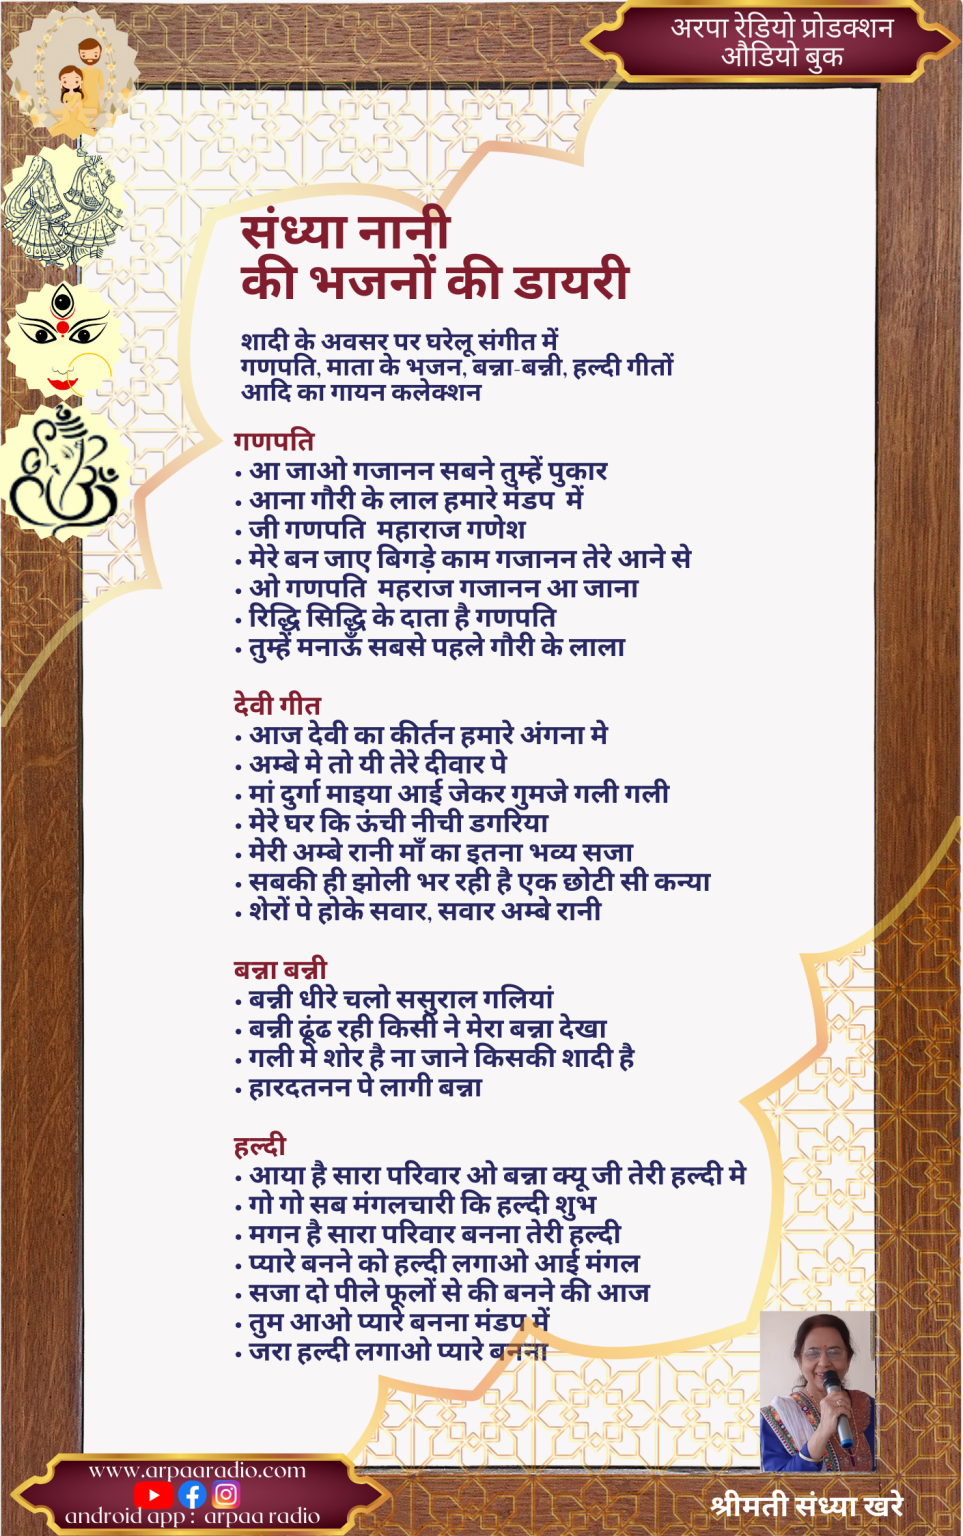 अरपा रेडियो प्रोडक्शन
औडियो बुक
संध्या नानी
की भजनों की डायरी
शादी के अवसर पर घरेलू संगीत में
गणपति, माता के भजन, बन्ना-बन्नी, हल्दी गीतों
आदि का गायन कलेक्शन
गणपति
• आ जाओ गजानन सबने तुम्हें पुकार
• आना गौरी के लाल हमारे मंडप में
• जी गणपति महाराज गणेश
• मेरे बन जाए बिगड़े काम गजानन तेरे आने से
• ओ गणपति महराज गजानन आ जाना
• रिद्धि सिद्धि के दाता है गणपति
• तुम्हें मनाऊँ सबसे पहले गौरी के लाला
देवी गीत
• आज देवी का कीर्तन हमारे अंगना मे
• अम्बे मे तो यी तेरे दीवार पे
• मां दुर्गा माइया आई जेकर गुमजे गली गली
• मेरे घर कि ऊंची नीची डगरिया
• मेरी अम्बे रानी माँ का इतना भव्य सजा
• सबकी ही झोली भर रही है एक छोटी सी कन्या
• शेरों पे होके सवार, सवार अम्बे रानी
बन्ना बन्नी
• बन्नी धीरे चलो ससुराल गलियां
• बन्नी ढूंढ रही किसी ने मेरा बन्ना देखा
• गली में शोर है ना जाने किसकी शादी है
• हारदतनन पे लागी बन्ना
हल्दी
• आया है सारा परिवार ओ बन्ना क्यू जी तेरी हल्दी मे
• गो गो सब मंगलचारी कि हल्दी शुभ
• मगन है सारा परिवार बनना तेरी हल्दी
• प्यारे बनने को हल्दी लगाओ आई मंगल
• सजा दो पीले फूलों से की बनने की आज
• तुम आओ प्यारे बनना मंडप में
• जरा हल्दी लगाओ प्यारे बनना
www.arpaaradio.com
android app : arpaa radio
श्रीमती संध्या खरे